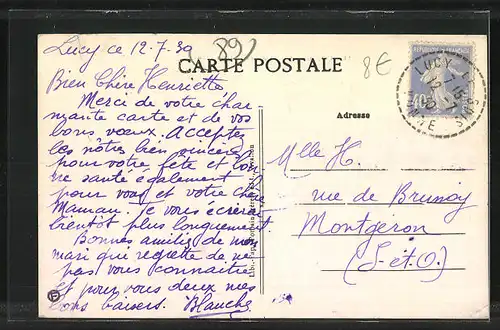 Lucy ce 12-7-39
(89)
8€
CARTE POSTALE
Bien Chère Henriette
Merci de votre char
mante carte et de vos
bons vœux. Acceptez
les nôtres bien sincères
pour votre fête et bon
ne santé également
pour vous et votre chère
Maman. Je vous écrirai
bientôt plus longuement.
Bonnes amitiés de mon
mari qui regrette de ne
pas vous connaitre
et pour vous deux mes
bons baisers. Blanche
Adresse
REPUBLIQUE FRANÇAISE
LUCY
YONNE
Mlle H.
rue de Brunoy
Montgeron
(S-et-O.)